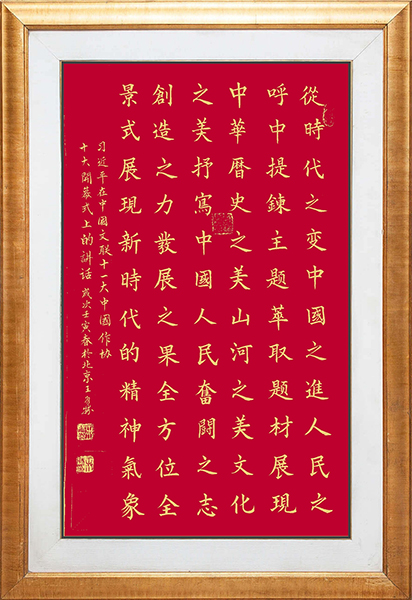 從時代之变中國之進人民之
呼中提鍊主題萃取題材展現
中華曆史之美山河之美文化
之美抒寫中國人民奮闘之志
創造之力發展之果全方位全
景式展現新時代的精神氣象
习近平在中国文联十一大中國作协
十大開幕式上的讲话 歲次壬寅春於北京王